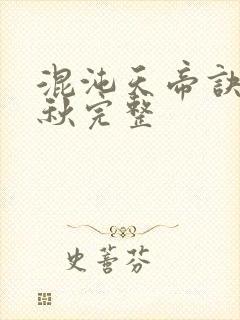 混沌天帝訣
秋完整
史萫芬